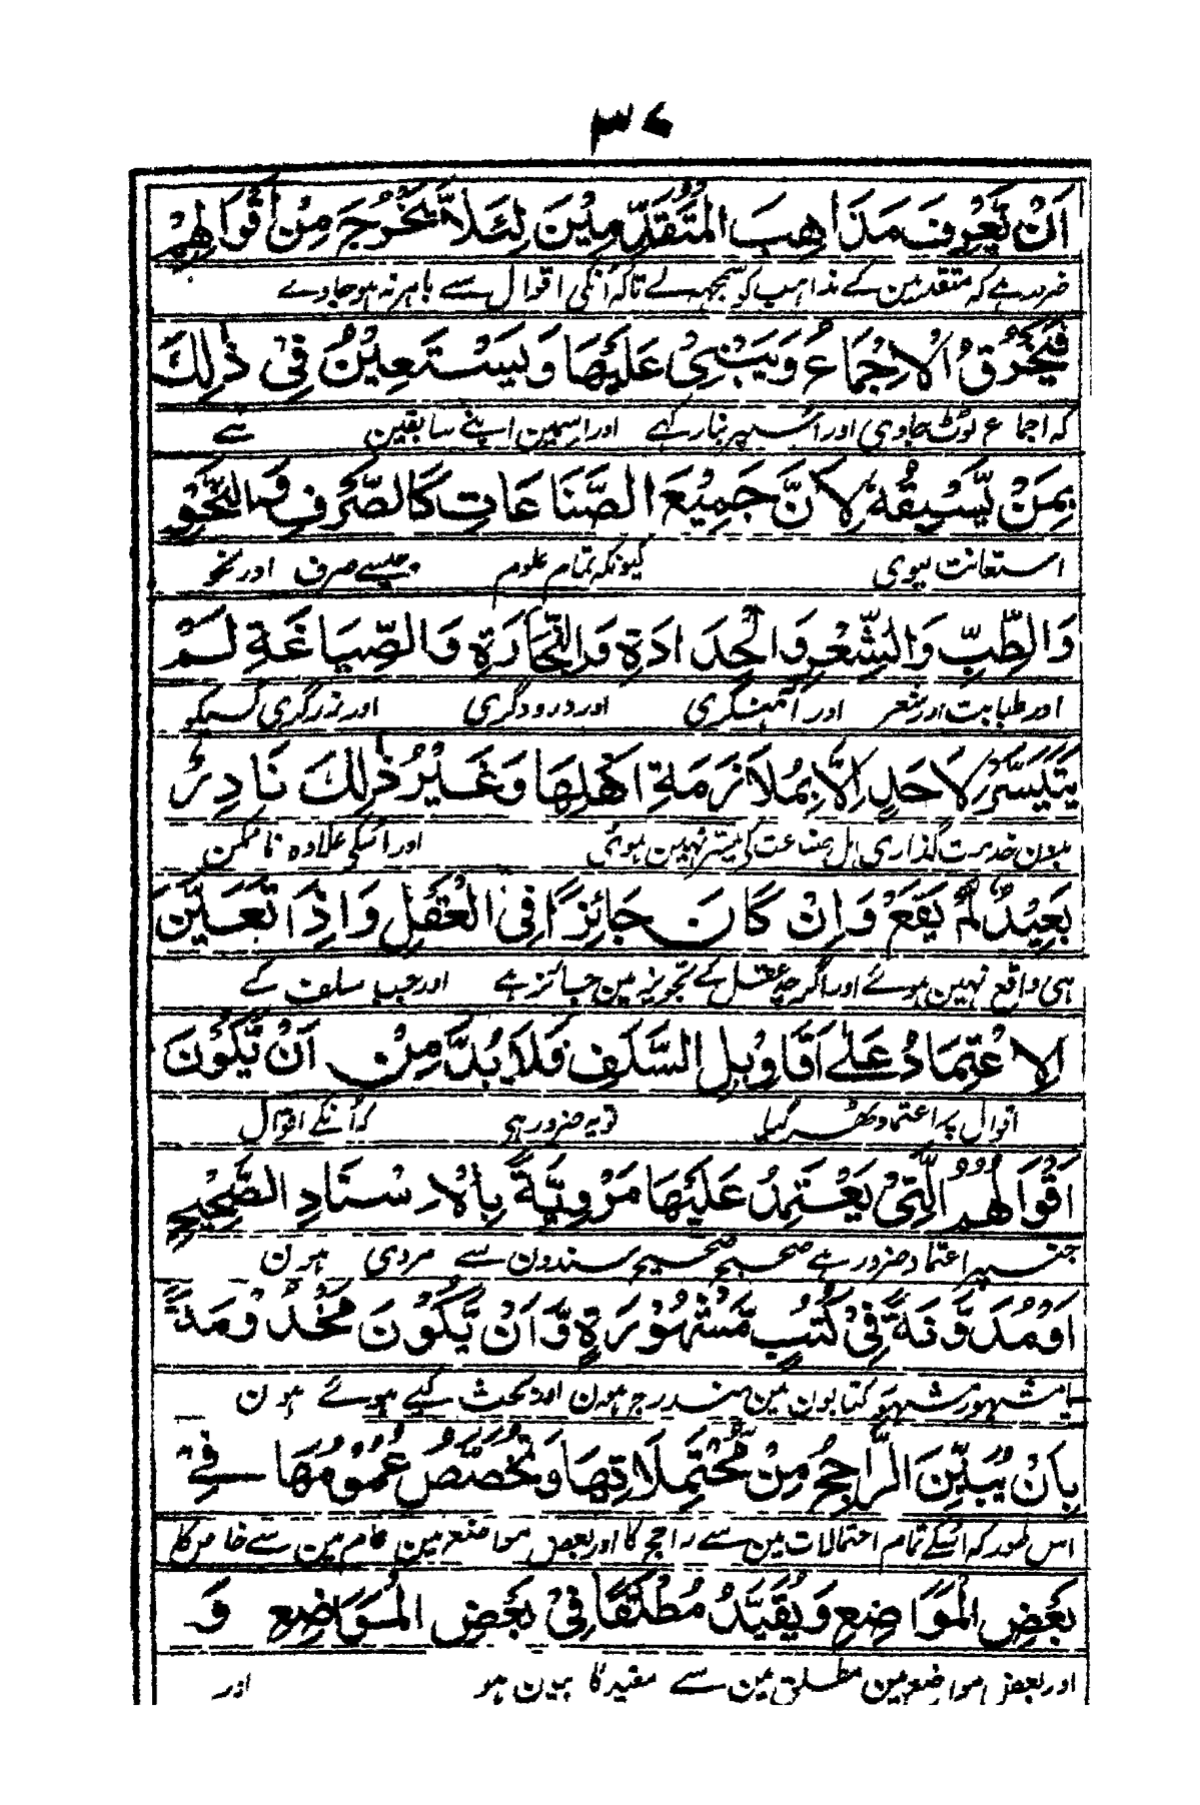 ٣٤
اَنْ تَعْرِفَ مَذَاهِبَ الْمُتَقَدِّمِيْنَ لِئَلَّا تَخْرُجَ مِنْ اَقْوَالِهِمْ
ضرور ہے کہ متقدمین کے مذاہب کو سمجھ لے تاکہ انکی اقوال سے باہر نہ ہوجاوے
فَتَخْرُقُ الْاِجْمَاعُ وَيَبْنِيْ عَلَيْهَا وَيَسْتَعِيْنُ فِيْ ذٰلِكَ
کہ اجماع ٹوٹ جاوی اور اسپر بنا رکہے اور اسمین اپنے سابقین سے
بِمَنْ يَّسْبِقُهُ لِاَنَّ جَمِيْعَ الصَّنَاعَاتِ كَالصَّرْفِ وَالنَّحْوِ
استعانت لیوی کیونکہ تمام علوم جیسے صرف اور نحو
وَالطِّبِّ وَالشِّعْرِ وَالْحِدَادَةِ وَالنِّجَارَةِ وَالصِّيَاغَةِ لَمْ
اور طبابت اور شعر اور آہنگری اور درودگری اور زرگری کسیکو
يَتَيَسَّرْ لِاَحَدٍ اِلَّا بِمُلَازَمَةِ اَهْلِهَا وَغَيْرُ ذٰلِكَ نَادِرٌ
بدون خدمت گذاری اہل صناعت کی میسر نہین ہوئی اور اسکی علاوہ ناممکن
بَعِيْدٌ لَمْ يَقَعْ وَاِنْ كَانَ جَائِزًا فِي الْعَقْلِ وَاِذَا تَعَيَّنَ
ہی واقع نہین ہوئے اور اگرچہ عقل کے تجویز مین جائز ہے اور جب سلف کے
الْاِعْتِمَادُ عَلٰى اَقَاوِيْلِ السَّلَفِ فَلَا بُدَّ مِنْ اَنْ يَّكُوْنَ
اقوال پر اعتماد ٹھہر گیا تو یہ ضرور ہی کہ انکے اقوال
اَقْوَالُهُمُ الَّتِيْ يَعْتَمِدُ عَلَيْهَا مَرْوِيَّةً بِالْاِسْنَادِ الصَّحِيْحِ
جنپر اعتماد ضرور ہے صحیح صحیح سندون سے مروی ہون
اَوْ مُدَوَّنَةً فِيْ كُتُبٍ مَّشْهُوْرَةٍ وَّاَنْ يَّكُوْنَ مَخْدُوْمَةً
یا مشہور مشہور کتابون مین مندرج ہون اور بحث کیے ہوئے ہون
بِاَنْ يُّبَيِّنَ الرَّاجِحُ مِنْ مُّحْتَمِلَاتِهَا وَتُخَصَّصُ عُمُوْمُهَا فِيْ
اس طور کہ اسکے تمام احتمالات مین سے راجح کا اور بعض مواضع مین عام مین سے خاص کا
بَعْضِ الْمَوَاضِعِ وَيُقَيَّدُ مُطْلَقُهَا فِيْ بَعْضِ الْمَوَاضِعِ وَ
اور بعض مواضع مین مطلق مین سے مقید کا بیان ہو اور